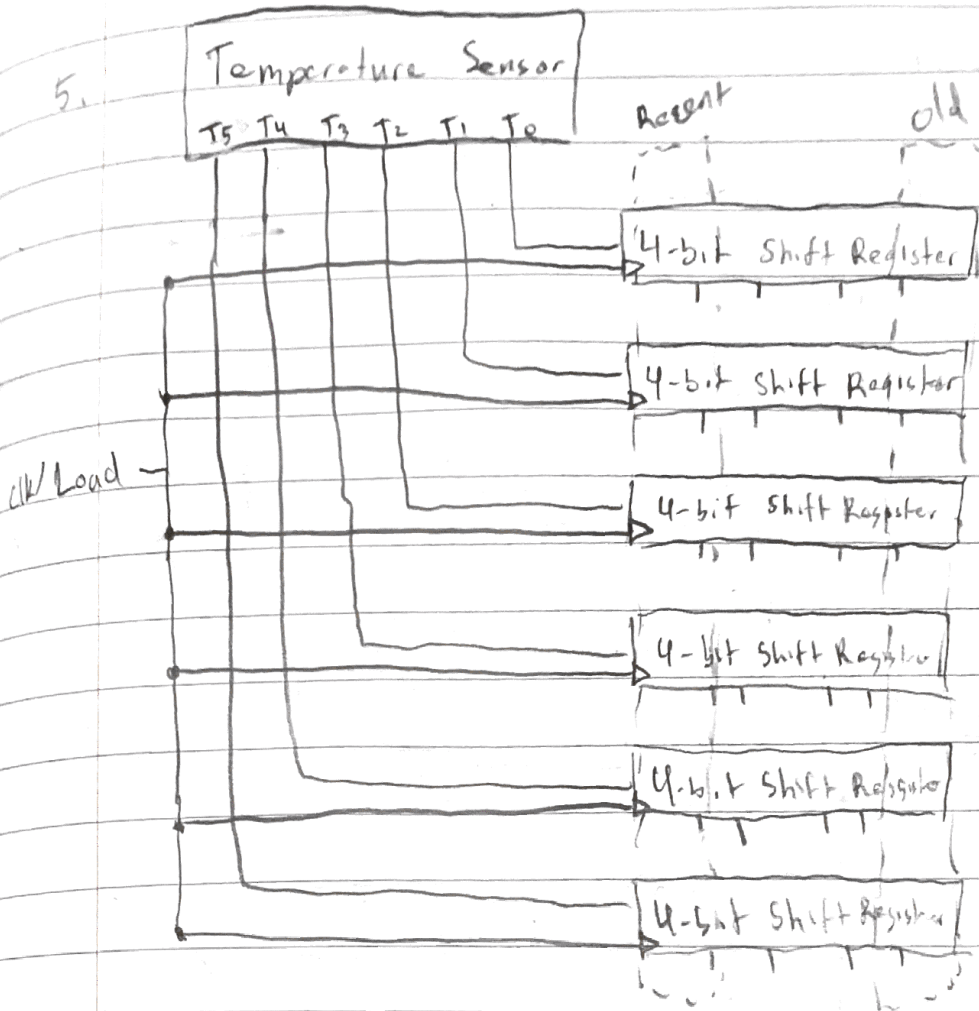 5.
Temperature Sensor
T5 T4 T3 T2 T1 T0
Recent
old
4-bit Shift Register
4-bit Shift Register
clk/Load
4-bit Shift Register
4-bit Shift Register
4-bit Shift Register
4-bit Shift Register